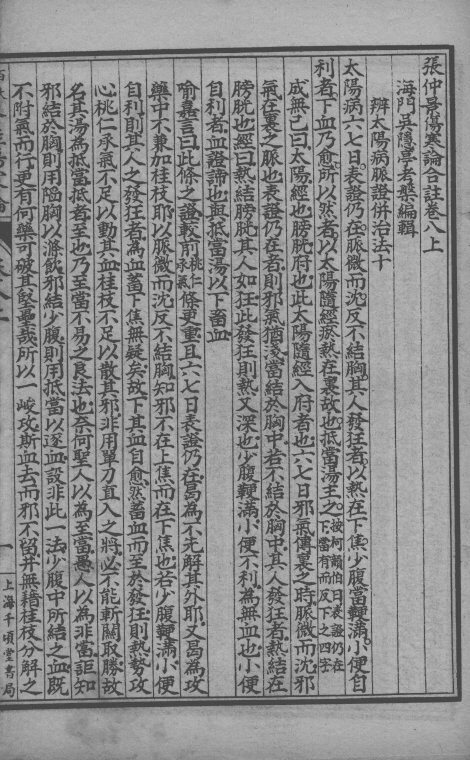 張仲景傷寒論合註卷八上
海門吳隱亭考槃編輯
辨太陽病脈證併治法十
太陽病六七日表證仍在脈微而沈反不結胸其人發狂者以熱在下焦少腹當鞕滿小便自
利者下血乃愈所以然者以太陽隨經瘀熱在裏故也抵當湯主之按柯韻伯曰表證仍在下當有而反下之四字
成無己曰太陽經也膀胱府也此太陽隨經入府者也六七日邪氣傳裏之時脈微而沈邪
氣在裏之脈也表證仍在者則邪氣猶淺當結於胸中若不結於胸中其人發狂者熱結在
膀胱也經曰熱結膀胱其人如狂此發狂則熱又深也少腹鞕滿小便不利為無血也小便
自利者血證諦也與抵當湯以下畜血
喻嘉言曰此條之證較前桃仁承氣條更重且六七日表證仍在曷為不先解其外耶又曷為攻
藥中不兼加桂枝耶以脈微而沈反不結胸知邪不在上焦而在下焦也若少腹鞕滿小便
自利則其人之發狂者為血蓄下焦無疑矣故下其血自愈然蓄血而至於發狂則熱勢攻
心桃仁承氣不足以動其血桂枝不足以散其邪非用單刀直入之將必不能斬關取勝故
名其湯為抵當抵者至也乃至當不易之良法也奈何聖人以為至當愚人以為非當詎知
邪結於胸則用陷胸以滌飲邪結少腹則用抵當以逐血設非此一法少腹中所結之血既
不附氣而行更有何藥可破其堅壘哉所以一峻攻斯血去而邪不留并無藉桂枝分解之
一
上海千頃堂書局